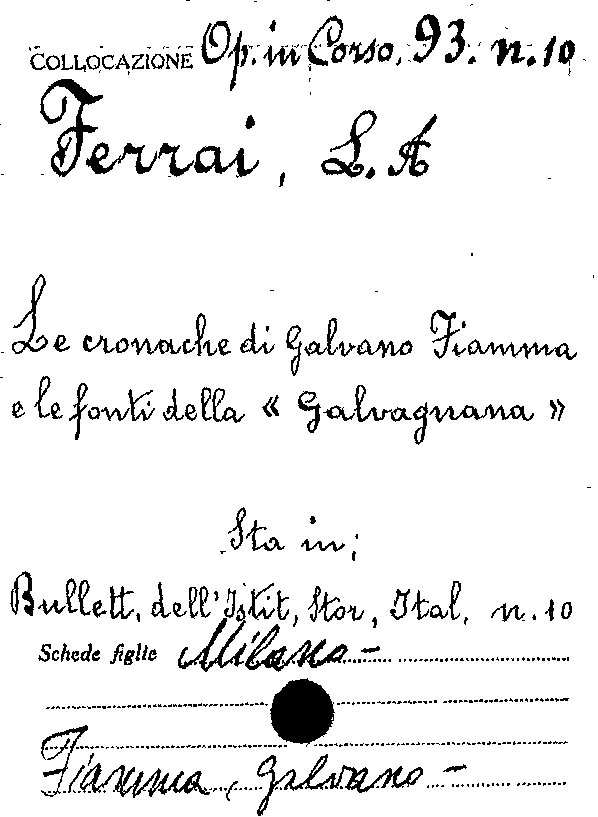 COLLOCAZIONE Op. in Corso. 93. n. 10
Ferrai, L. A
Le cronache di Galvano Fiamma
e le fonti della « Galvagnana »
Sta in;
Bullett. dell'Istit, Stor, Ital, n. 10
Schede figlie Milano -
Fiamma, Galvano -